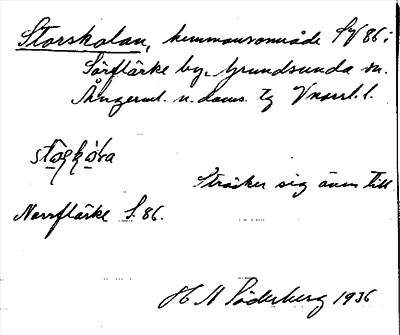 Storskolan, hemmansområde SV 86 i
Sörflärke by. Grundsunda sn.
Ångerml. n. doms. tg Vnorrl. l.
Sträcker sig även till
Norrflärke S. 86.
H N Söderberg 1936